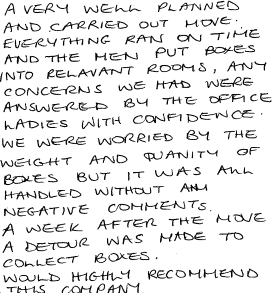 A VERY WELL PLANNED
AND CARRIED OUT MOVE.
EVERYTHING RAN ON TIME
AND THE MEN PUT BOXES
INTO RELAVANT ROOMS, ANY
CONCERNS WE HAD WERE
ANSWERED BY THE OFFICE
LADIES WITH CONFIDENCE.
WE WERE WORRIED BY THE
WEIGHT AND QUANITY OF
BOXES BUT IT WAS ALL
HANDLED WITHOUT
NEGATIVE COMMENTS.
A WEEK AFTER THE MOVE
A DETOUR WAS MADE TO
COLLECT BOXES.
WOULD HIGHLY RECOMMEND
THIS COMPANY